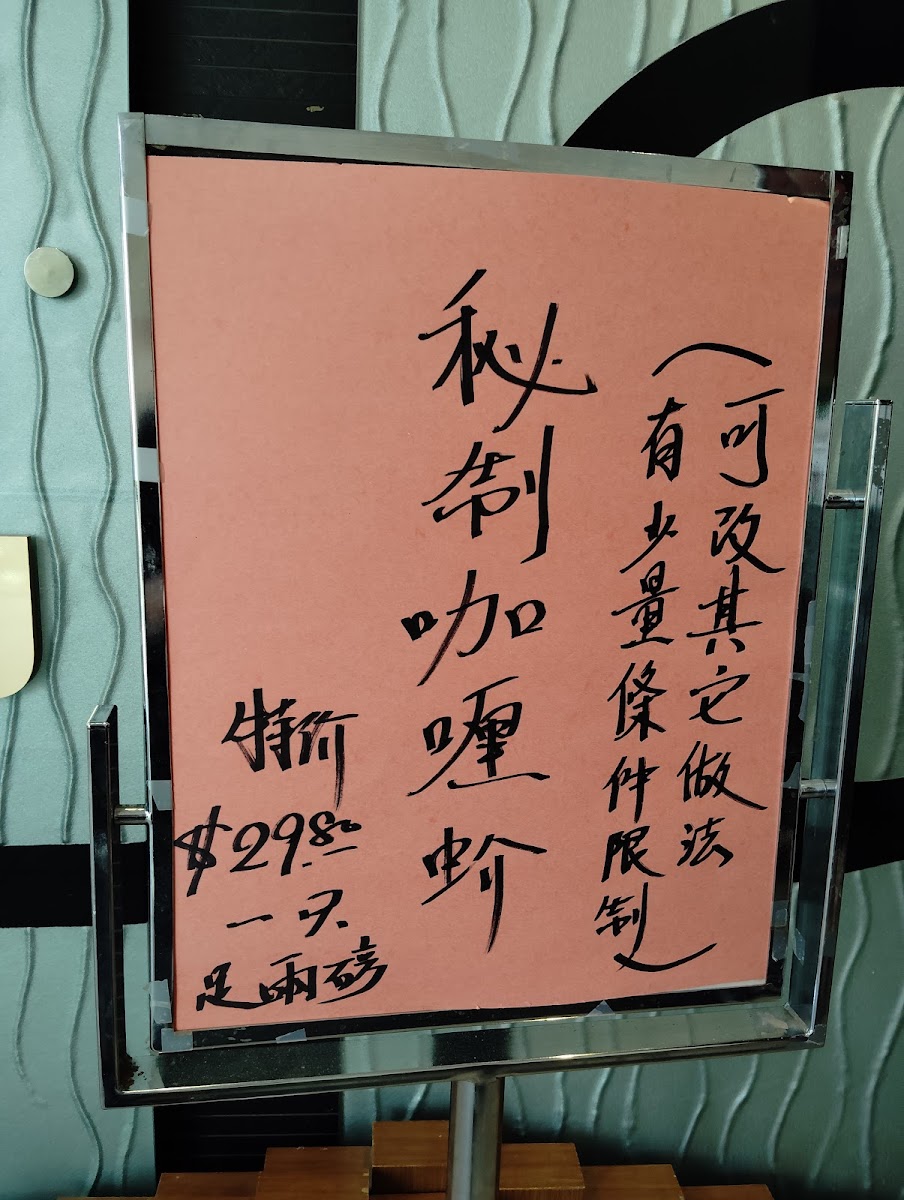 (可改其它做法
有少量條件限制)
秘制咖喱蚧
特价
$29.80
一只
足兩磅